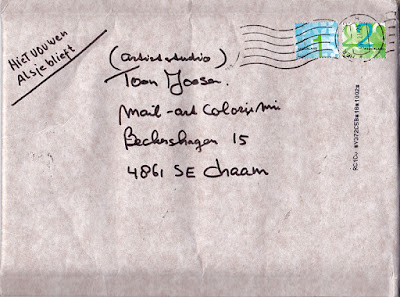 NIET VOUWEN
Alsjeblieft
(artist studio)
Toon Joosen
mail-art Colorismi
Beckershagen 15
4861 SE Chaam
1
2